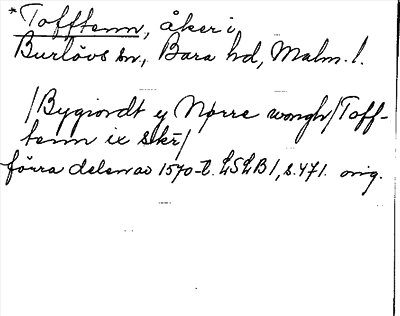 *Tofftenn, åker i
Burlövs sn., Bara hd, Malm. l.
/Bygiordt y Nørre wongh/Toff-
tenn ix skr/
förra delen av 1570-t. LSLB 1, s. 471. orig.